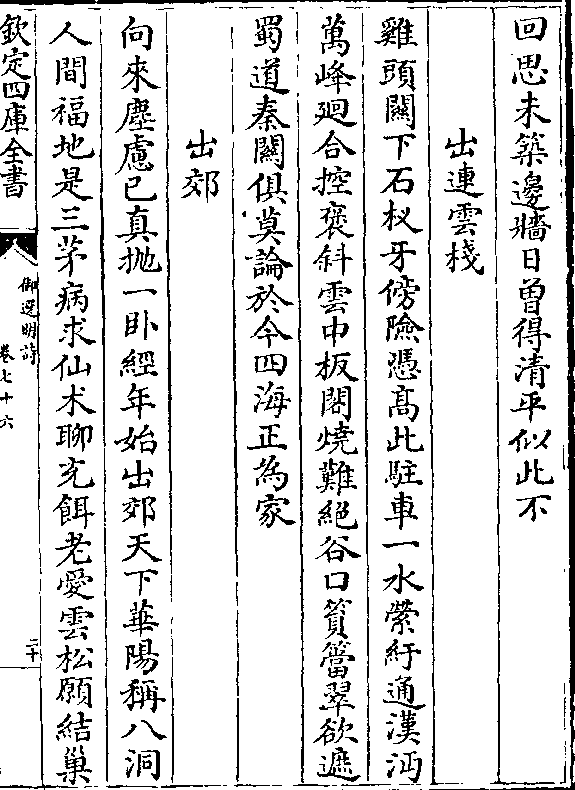 回思未築邊牆日曽得清平似此不
出連雲棧
雞頭闗下石杈牙傍險憑髙此駐車一水縈紆通漢沔
萬峰廻合控褒斜雲中板閣燒難絶谷口篔簹翠欲遮
蜀道秦闗俱莫論於今四海正為家
出郊
向來塵慮已真抛一卧經年始出郊天下華陽稱八洞
人間福地是三茅病求仙术聊充餌老愛雲松願結巢
欽定四庫全書
御選明詩
卷七十六
二十